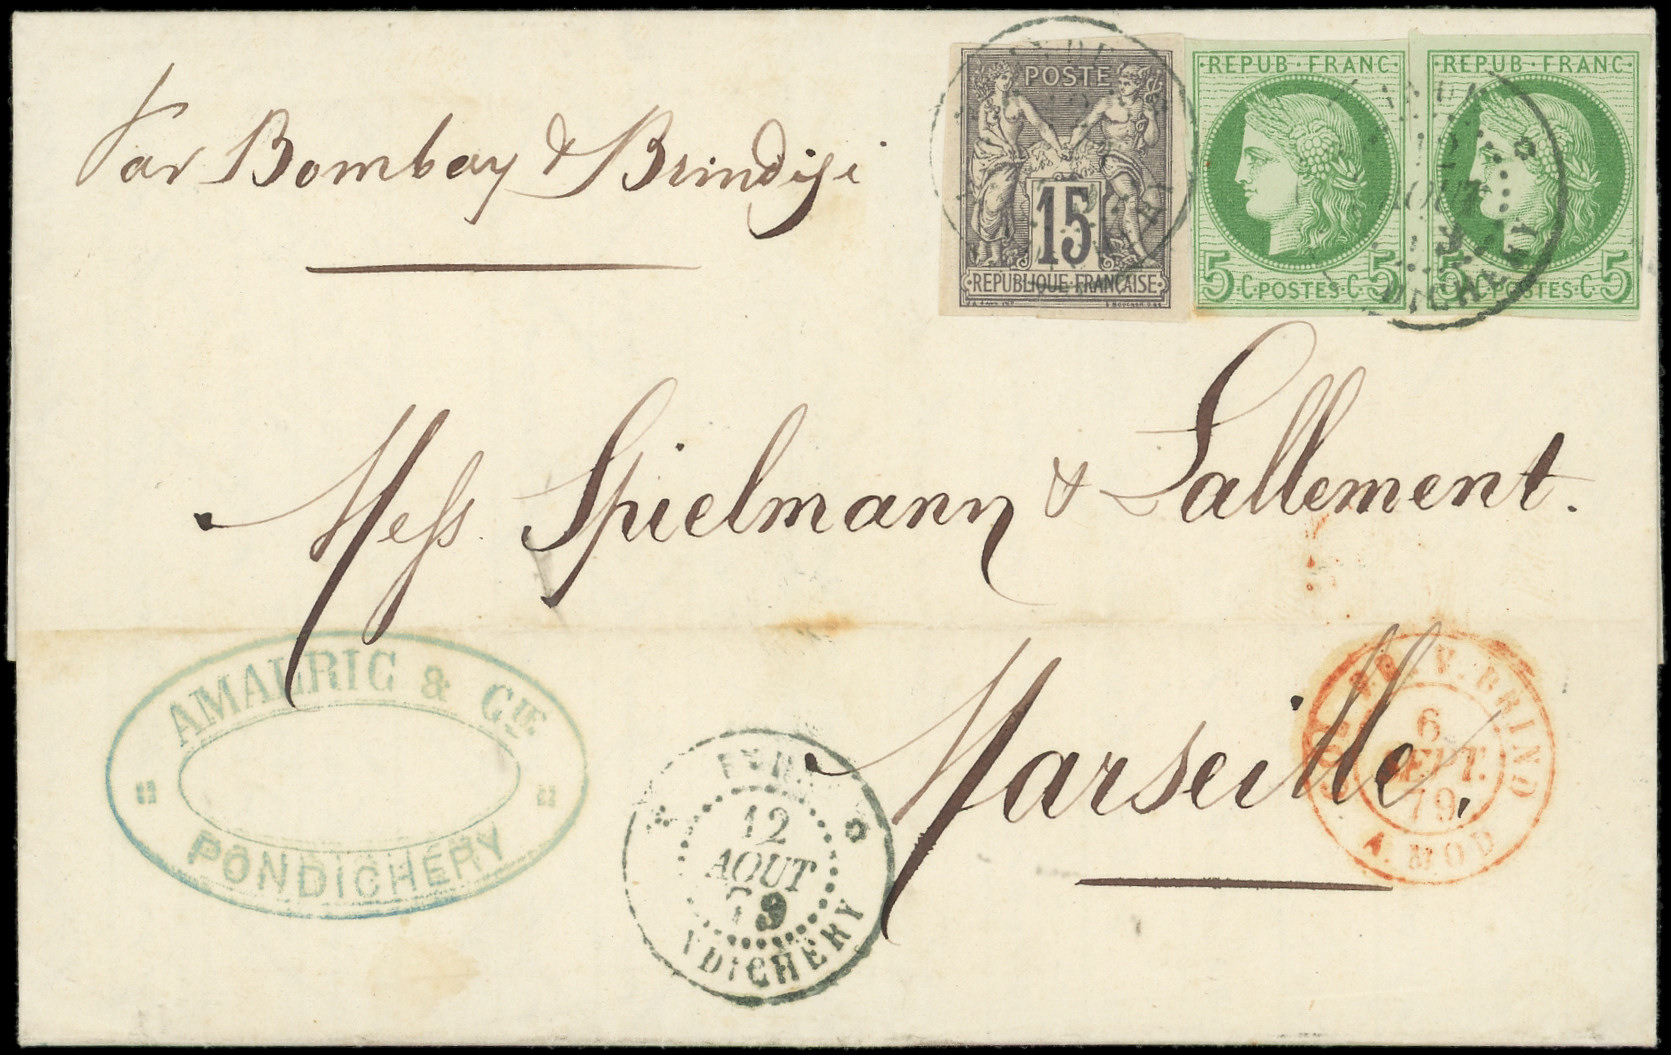 Par Bombay & Brindisi
POSTE
15
REPUBLIQUE FRANÇAISE
REPUB FRANC
5 C POSTES C 5
REPUB FRANC
5 C POSTES C 5
12
AOUT
DICHERY
Mess Spielmann & Lallement.
Marseille.
AMALRIC & CIE
PONDICHERY
12
AOUT
79
NDICHERY
V. BRIND
6
SEPT.
79
A. MOD